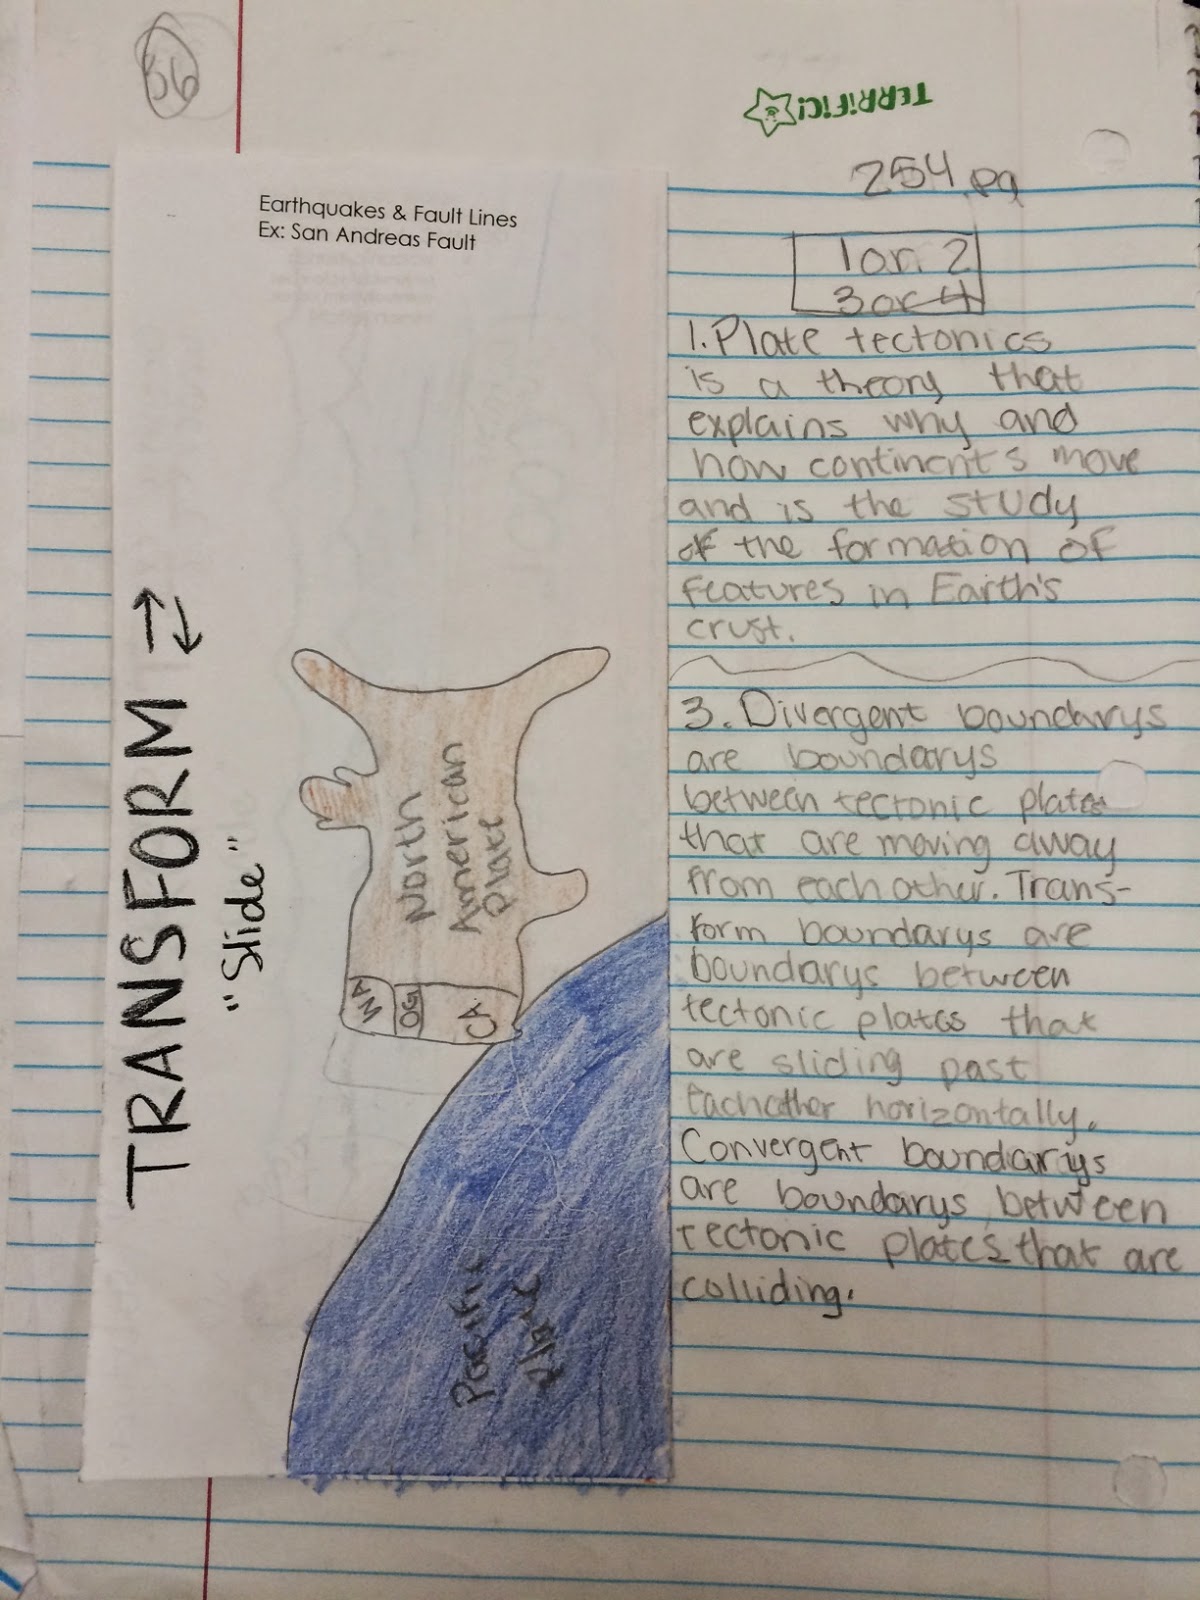 36
TERRIFIC!
254 pg
Earthquakes & Fault Lines
Ex: San Andreas Fault
1 or 2
3 or 4
1. Plate tectonics
is a theory that
explains why and
how continents move
and is the study
of the formation of
features in Earth's
crust.
3. Divergent boundarys
are boundarys
between tectonic plates
that are moving away
from each other. Trans-
form boundarys are
boundarys between
tectonic plates that
are sliding past
eachother horizontally.
Convergent boundarys
are boundarys between
tectonic plates that are
colliding.
TRANSFORM
"Slide"
North
American
Plate
WA
OG
CA
Pacific
Plate